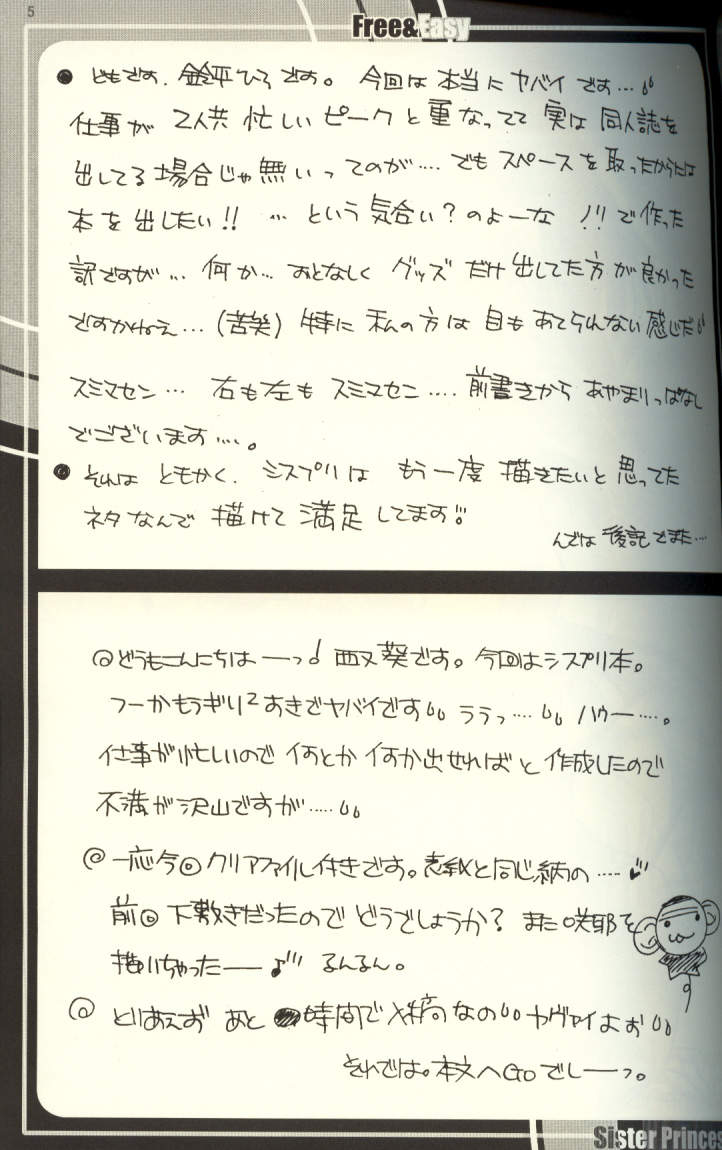 5
Free&Easy
● ともです、鈴平ひろです。今回は本当にヤバイです…
仕事が2人共忙しいピークと重なってて実は同人誌を
出してる場合じゃ無いってのが…. でもスペースを取ったからには
本を出したい!! … という気合い?のよーな !!で作った
訳ですが… 何か… おとなしくグッズだけ出してた方が良かった
ですかねぇ… (苦笑) 特に私の方は目もあてられない感じだ
スミマセン… 右も左もスミマセン…. 前書きからあやまりっぱなし
でございます….。
● それはともかく、シスプリはもう一度描きたいと思ってた
ネタなんで描けて満足してます!!
んでは後記でまた…
@どうもこんにちはーっ♪ 西又葵です。今回はシスプリ本。
つーかもうぎり2あきでヤバイです ううっ…. ハウー….。
仕事が忙しいので何とか何か出せればと作成したので
不満が沢山ですが…..
@ 一応今回クリアファイル付きです。表紙と同じ柄の….
前回下敷きだったのでどうでしょうか? また咲耶を
描いちゃったー♪ るんるん。
@ とりあえずあと 時間で入稿なの ヤヴァイよぉ
それでは。本文へGoでしーっ。
Sister Princes